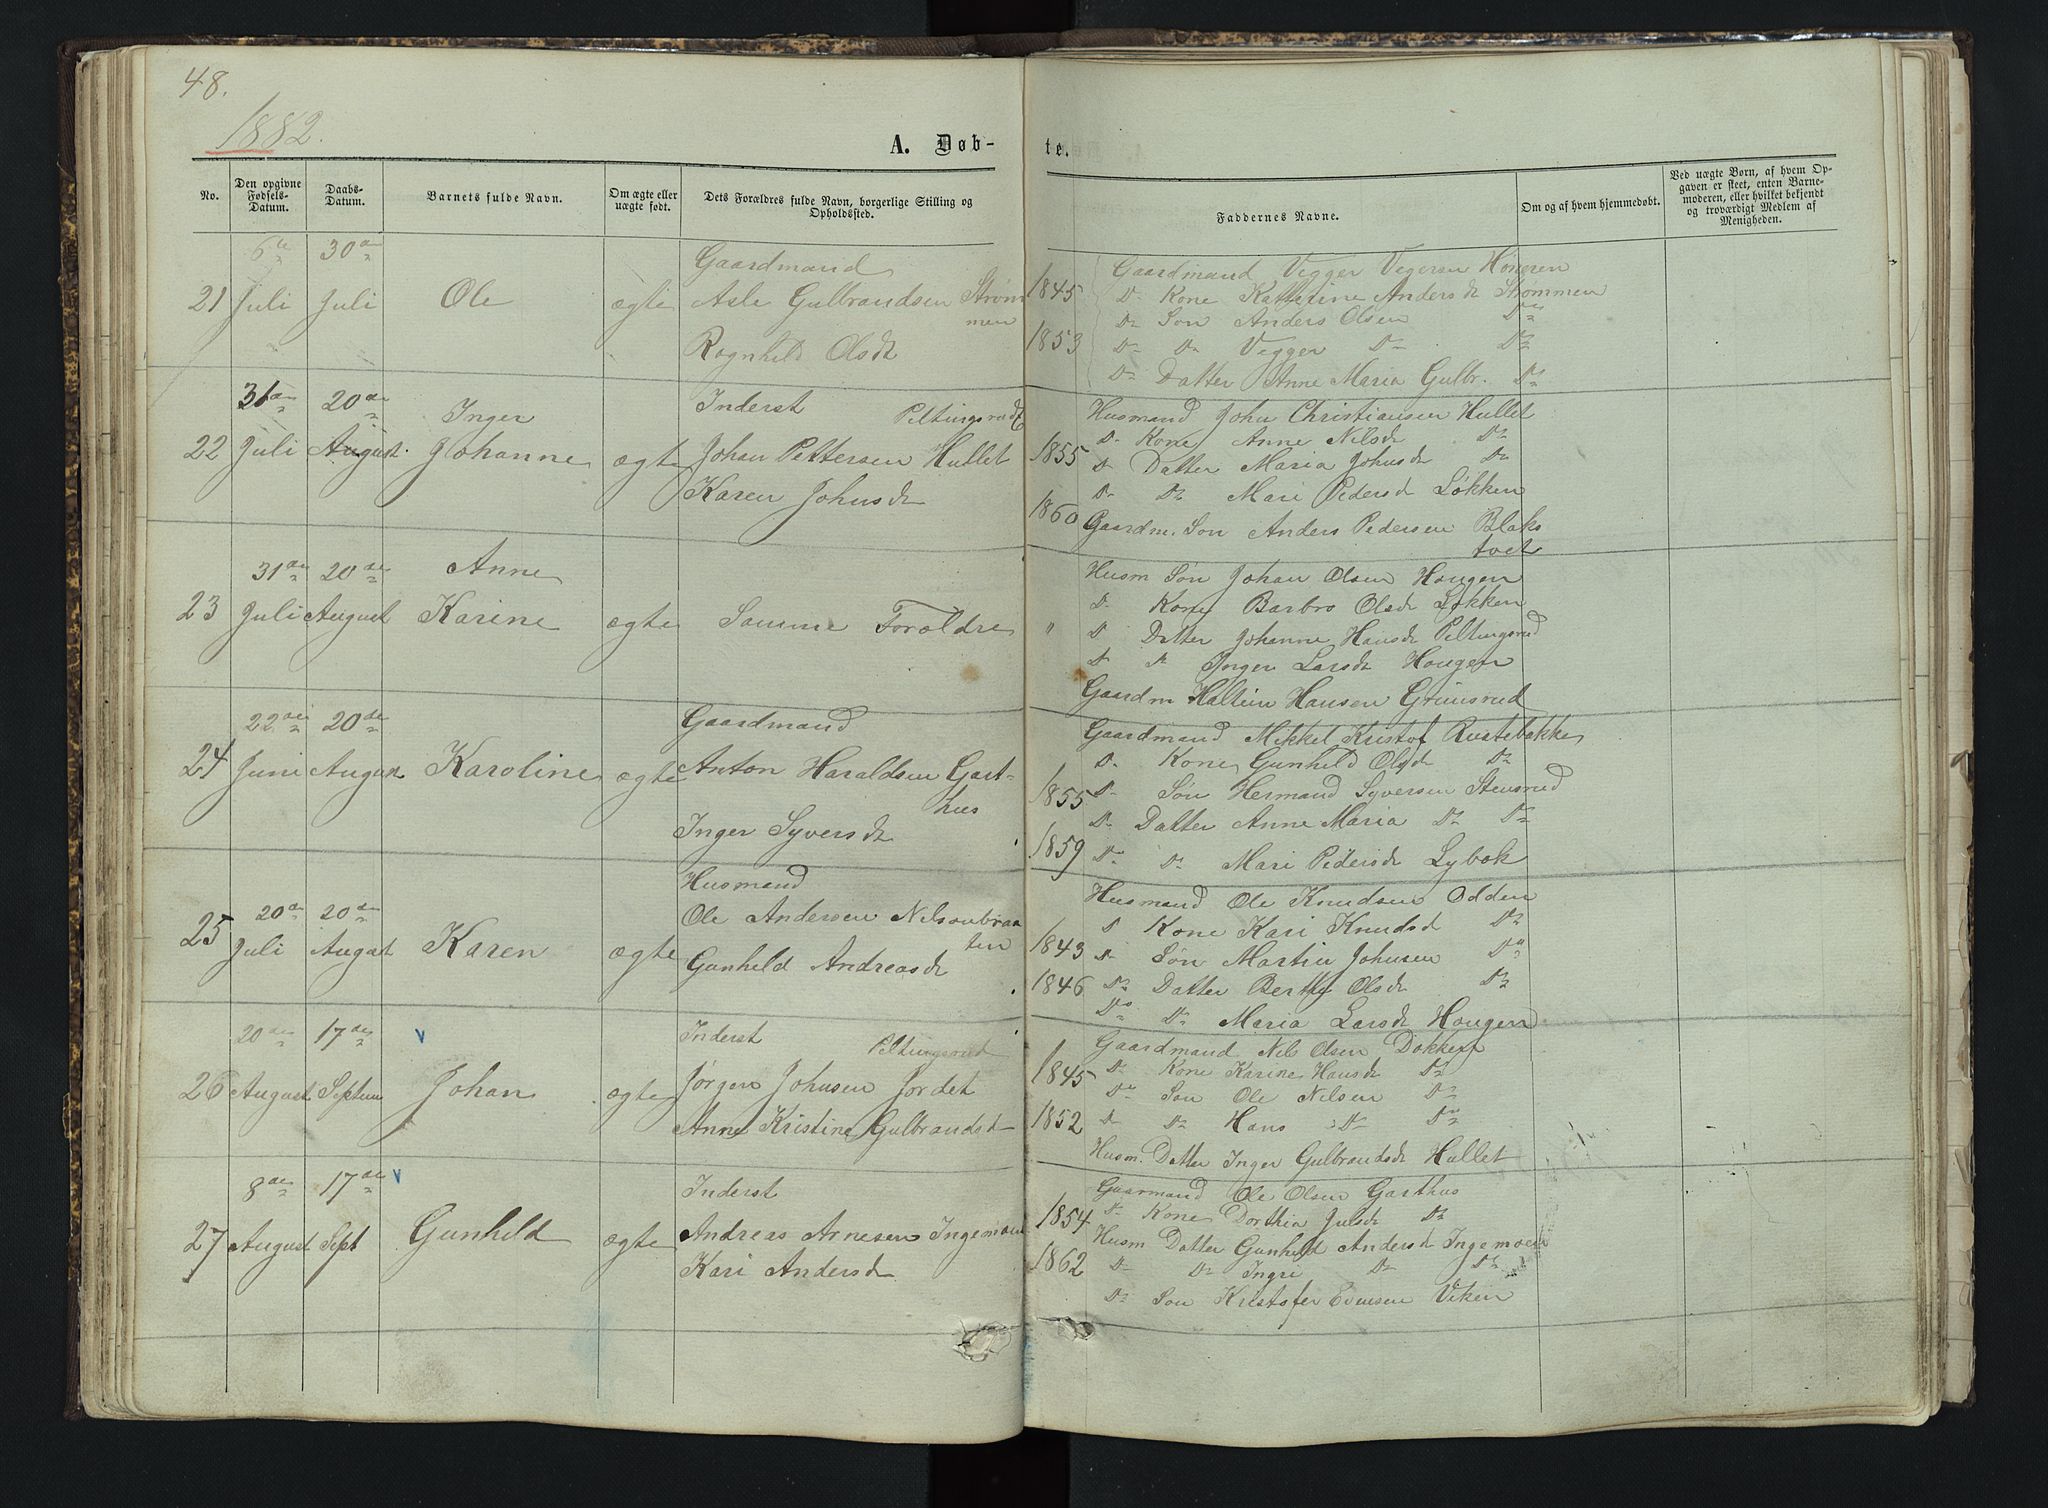 48.
1882.
A. Døb-
te.
No.
Den opgivne Fødsels-Datum.
Daabs-Datum.
Barnets fulde Navn.
Om ægte eller uægte født.
Dets Forældres fulde Navn, borgerlige Stilling og Opholdssted.
Faddernes Navne.
Om og af hvem hjemmedøbt.
Ved uægte Børn, af hvem Opgaven er skeet, enten Barnemoderen, eller hvilket bekjendt og troværdigt Medlem af Menigheden.
21
6te Juli
30te Juli
Ole
ægte
Gaardmand
Asle Gulbrandsen Strømmen
Rognhild Olsdt
1845
1853
Gaardmand Vegger Vegersen
Do Kone Katherine Andersdt Strømmen
Do Søn Anders Olsen Do
Do Do Vegger Do Do
Do Datter Anne Maria Gulbr. Do
22
31te Juli
20de August.
Inger Johanne
ægte
Inderst Peltingsrud
Johan Pettersen Hullet
Karen Johnsdt
1855
1860
Husmand John Christiansen Hullet
Do Kone Anne Nilsdt Do
Do Datter Maria Johnsdt Do
Do Do Mari Pedersdt Løkken
Gaardm. Søn Anders Pedersen Blakstvet
23
31te Juli
20de August
Anne Karine
ægte
Samme Foroldre
"
Husm Søn Johan Olsen Hougen
Do Kone Barbro Olsdt Løkken
Do Datter Johanne Hansdt Peltingsrud
Do Do Inger Larsdt Hougen
Gaardm Halvin Hansen Grimsrud
24
22de Juni
20de August
Karoline
ægte
Gaardmand
Anton Haraldsen Garthus
Inger Syversdt
1855
1859
Gaardmand Mikkel Kristof Rustebakke
Do Kone Gunhild Olsdt Do
Do Søn Hermand Syversen Stensrud
Do Datter Anne Maria Do Do
Do Do Mari Pedersdt Lybæk
25
20de Juli
20de August
Karen
ægte
Husmand
Ole Andersen Nilsonbraaten
Gunhild Andreasdt
1843
1846
Husmand Ole Knudsen Odden
D Kone Kari Knudsd Do
Do Søn Martin Johnsen Do
Do Datter Berthe Olsdt Do
Do Do Maria Larsdt Hougen
26
20de August
17de Septem
v
Johan
ægte
Inderst Peltingsrud
Jørgen Johnsen Jordet
Anne Kristine Gulbrandsdt
1845
1852
Gaardmand Nils Olsen Dokken
Do Kone Karine Hansdt Do
Do Søn Ole Nilsen Do
Do Do Hans Do Do
Husm. Datter Inger Gulbrandsdt Hullet
27
8de August
17de Sept
v
Gunhild
ægte
Inderst
Andreas Arnesen Ingemoen
Kari Andersdt
1854
1862
Gaarmand Ole Olsen Garthus
Do Kone Dorthia Julsdt Do
Husm Datter Gunhild Andersdt Ingemoen
Do Do Ingri Do Do
Do Søn Kristofer Evensen Viken